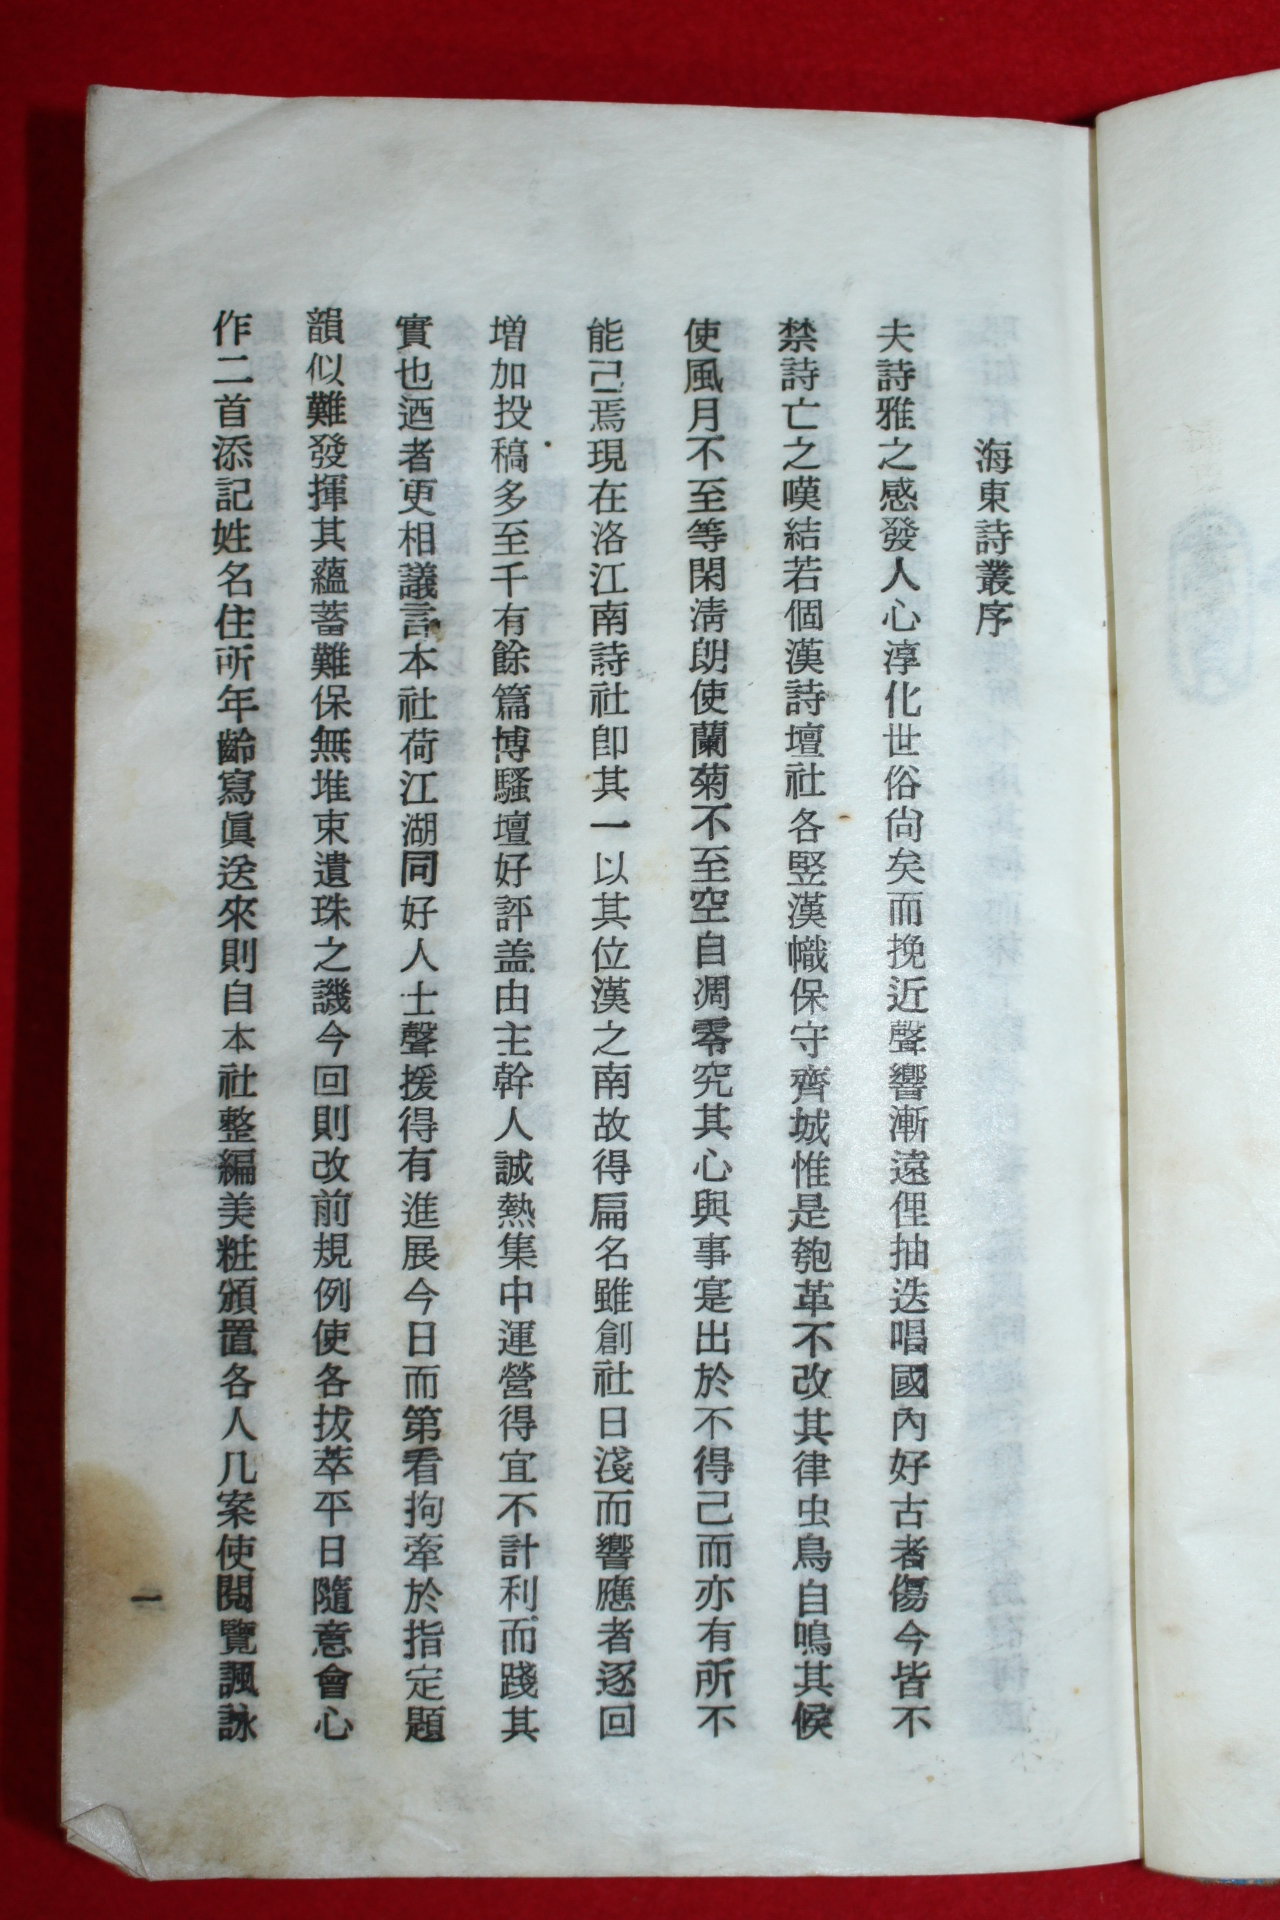 海東詩叢序
夫詩雅之感發人心淳化世俗尙矣而挽近聲響漸遠俚抽迭唱國內好古者傷今皆不
禁詩亡之嘆結若個漢詩壇社各竪漢幟保守齊城惟是匏革不改其律虫鳥自鳴其候
使風月不至等閑淸朗使蘭菊不至空自凋零究其心與事寔出於不得己而亦有所不
能己焉現在洛江南詩社卽其一以其位漢之南故得扁名雖創社日淺而響應者逐回
增加投稿多至千有餘篇博騷壇好評盖由主幹人誠熱集中運營得宜不計利而踐其
實也迺者更相議言本社荷江湖同好人士聲援得有進展今日而第看拘牽於指定題
韻似難發揮其蘊蓄難保無堆束遺珠之譏今回則改前規例使各拔萃平日隨意會心
作二首添記姓名住所年齡寫眞送來則自本社整編美粧頒置各人几案使閱覽諷詠
一